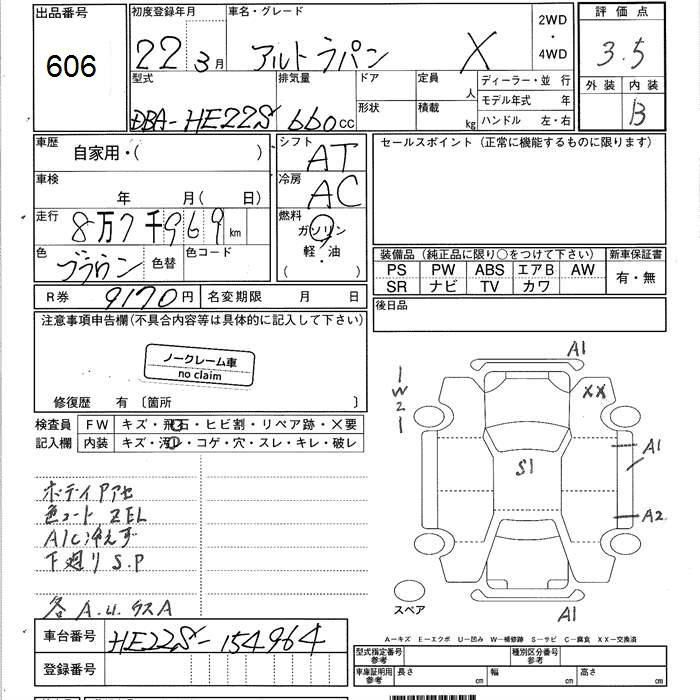 出品番号
606
初度登録年月
22 3月
車名・グレード
アルトラパン X
2WD
・
4WD
評価点
3.5
外装 内装
B
型式
DBA-HE22S
排気量
660cc
ドア
形状
定員
人
積載
kg
ディーラー・並 行
モデル年式 年
ハンドル 左・右
車歴
自家用・( )
車検
年 月( 日)
走行
8万7千969km
色
ブラウン
色替
色コード
シフト
AT
冷房
AC
燃料
ガソリン
軽・油
( )
セールスポイント (正常に機能するものに限ります)
装備品 (純正品に限り○をつけて下さい)
PS PW ABS エアB AW
SR ナビ TV カワ
新車保証書
有・無
後日品
R券 9170円
名変期限 月 日
注意事項申告欄(不具合内容等は具体的に記入して下さい)
ノークレーム車
no claim
修復歴 有 〔箇所 〕
検査員
記入欄
FW キズ・飛石・ヒビ割・リペア跡・X要
内装 キズ・汚レ・コゲ・穴・スレ・キレ・破レ
ボディアアセ
色コート ZEL
A/C冷えず
下廻り S.P
各 A.U.ウスA
1
W
2
1
A1
XX
A1
S1
A2
A1
スペア
A-キズ E-エクボ U-凹み W-補修跡 S-サビ C-腐食 XX-交換済
車台番号
HE22S-154964
登録番号
型式指定番号
参考
種別区分番号
参考
車庫証明用
参考
長さ cm
幅 cm
高さ cm